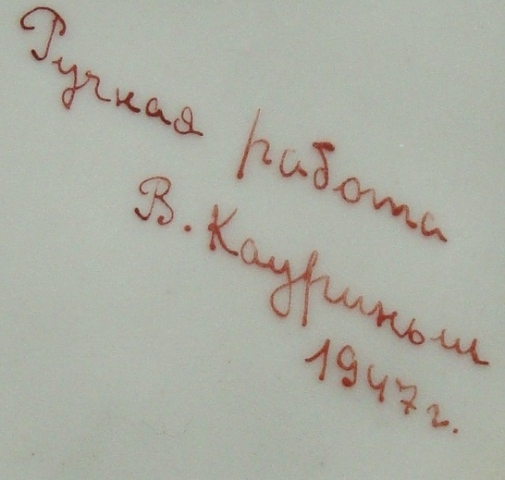 Ручная работа
В. Кауриньш
1947 г.